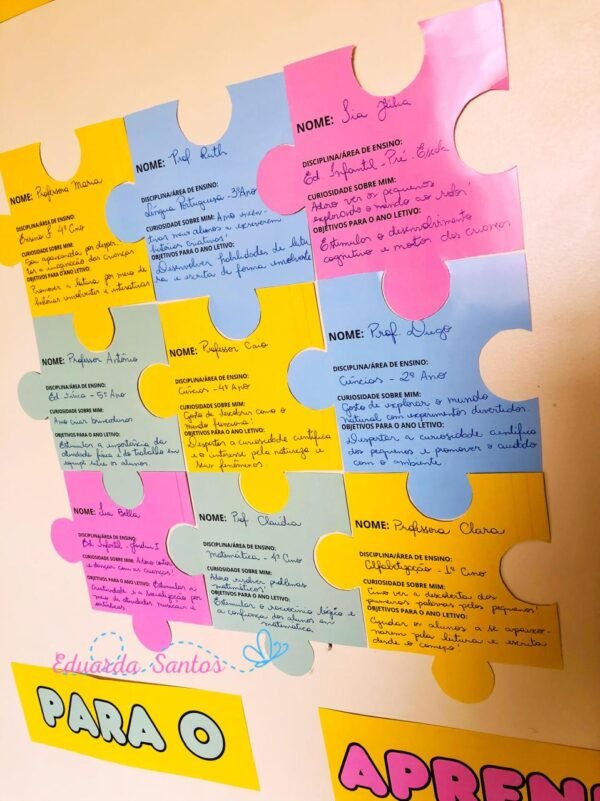 NOME: Professora Maria
DISCIPLINA/ÁREA DE ENSINO:
Ensino I - 4º Ano
CURIOSIDADE SOBRE MIM:
Sou apaixonada por desper-
tar a imaginação das crianças
OBJETIVOS PARA O ANO LETIVO:
Promover a leitura por meio de
histórias envolventes e interativas
NOME: Prof. Ruth
DISCIPLINA/ÁREA DE ENSINO:
Língua Portuguesa - 3º Ano
CURIOSIDADE SOBRE MIM: Amo incen-
tivar meus alunos a escreverem
histórias criativas!
OBJETIVOS PARA O ANO LETIVO:
Desenvolver habilidades de leitu
ra e escrita de forma envolvente
NOME: Tia Júlia
DISCIPLINA/ÁREA DE ENSINO:
Ed. Infantil - Pré-Escola
CURIOSIDADE SOBRE MIM:
Adoro ver os pequenos
explorando o mundo ao redor!
OBJETIVOS PARA O ANO LETIVO:
Estimular o desenvolvimento
cognitivo e motor das crianças
NOME: Professor Antônio
DISCIPLINA/ÁREA DE ENSINO:
Ed. Física - 5º Ano
CURIOSIDADE SOBRE MIM:
Amo criar brincadeiras
OBJETIVOS PARA O ANO LETIVO:
Estimular a importância da
atividade física e do trabalho em
equipe entre os alunos
NOME: Professor Caio
DISCIPLINA/ÁREA DE ENSINO:
Ciências - 4º Ano
CURIOSIDADE SOBRE MIM:
Gosto de descobrir como o
mundo funciona!
OBJETIVOS PARA O ANO LETIVO:
Despertar a curiosidade científica
e o interesse pela natureza e
seus fenômenos
NOME: Prof. Diego
DISCIPLINA/ÁREA DE ENSINO:
Ciências - 2º Ano
CURIOSIDADE SOBRE MIM:
Gosto de explorar o mundo
natural com experimentos divertidos
OBJETIVOS PARA O ANO LETIVO:
Despertar a curiosidade científica
dos pequenos e promover o cuidado
com o ambiente
NOME: Tia Bella
DISCIPLINA/ÁREA DE ENSINO:
Ed. Infantil - Jardim I
CURIOSIDADE SOBRE MIM: Adoro cantar
e dançar com as crianças!
OBJETIVOS PARA O ANO LETIVO: Estimular a
criatividade e a socialização por
meio de atividades musicais e
artísticas
NOME: Prof Claudia
DISCIPLINA/ÁREA DE ENSINO:
Matemática - 4º Ano
CURIOSIDADE SOBRE MIM:
Adoro resolver problemas
matemáticos!
OBJETIVOS PARA O ANO LETIVO:
Estimular o raciocínio lógico e
a confiança dos alunos em
matemática
NOME: Professora Clara
DISCIPLINA/ÁREA DE ENSINO:
Alfabetização - 1º Ano
CURIOSIDADE SOBRE MIM:
Amo ver a descoberta das
primeiras palavras pelos pequenos!
OBJETIVOS PARA O ANO LETIVO:
Ajudar os alunos a se apaixo-
narem pela leitura e escrita
desde o começo!
Eduarda Santos
PARA O
APREN